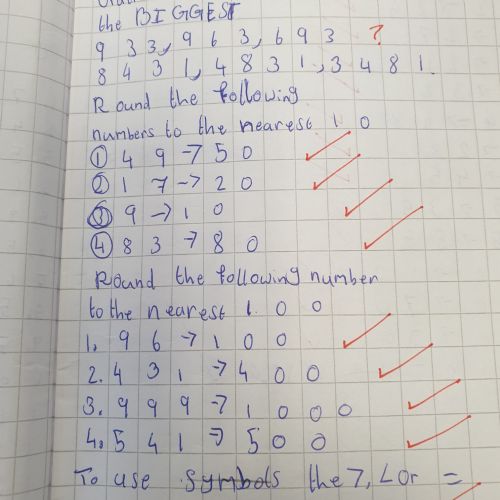 the BIGGEST
9 3 3, 9 6 3, 6 9 3 ?
8 4 3 1, 4 8 3 1, 3 4 8 1.
Round the following
numbers to the nearest 1 0
① 4 9 → 5 0
② 1 7 → 2 0
③ 9 → 1 0
④ 8 3 → 8 0
Round the following number
to the nearest 1 0 0
1. 9 6 → 1 0 0
2. 4 3 1 → 4 0 0
3. 9 9 9 → 1 0 0 0
4. 5 4 1 → 5 0 0
To use symbols the >, < or =